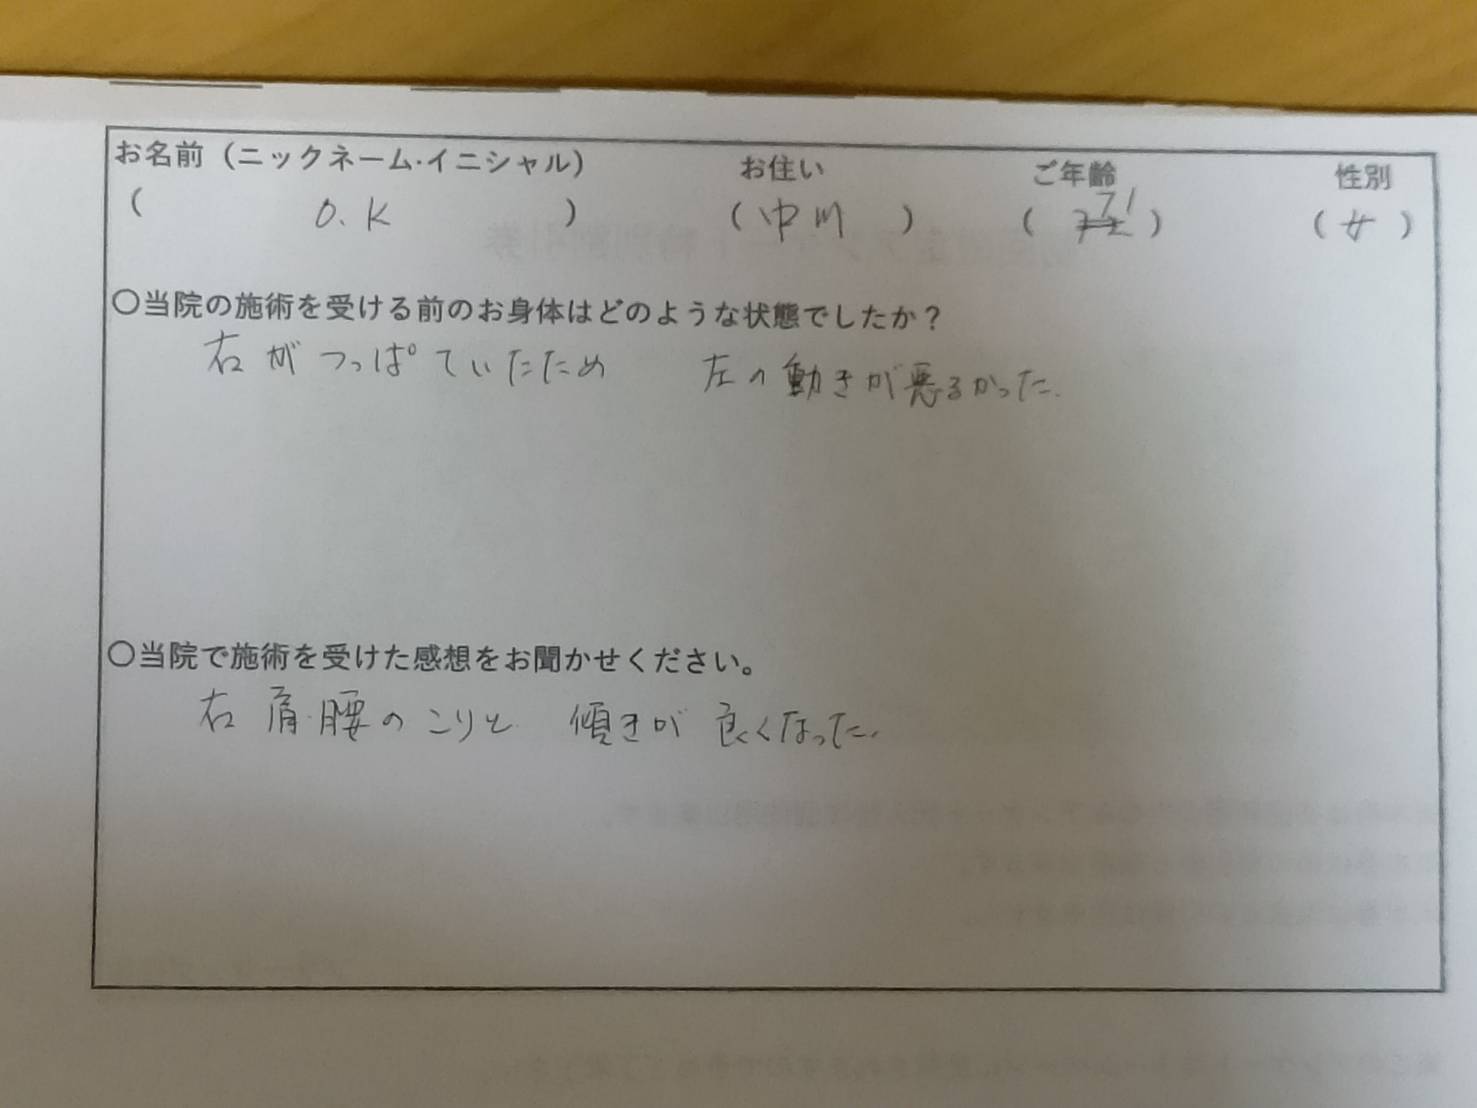 お名前（ニックネーム・イニシャル） お住い ご年齢 性別
（ O.K ） （ 中川 ） （ 71 ） （ 女 ）
○当院の施術を受ける前のお身体はどのような状態でしたか？
右がつっぱていたため 左の動きが悪るかった.
○当院で施術を受けた感想をお聞かせください。
右肩・腰のこりと 傾きが良くなった.